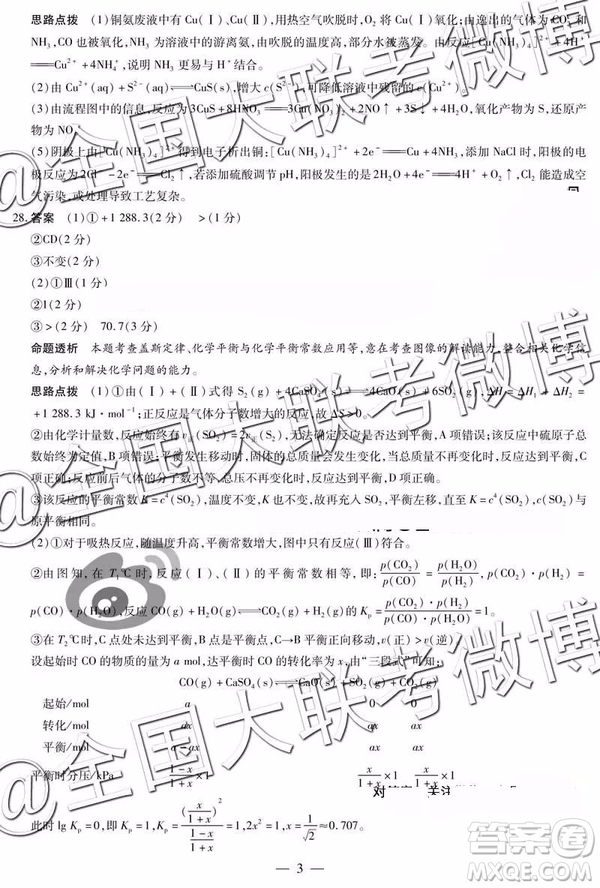 思路点拨 (1)铜氨废液中有 Cu(Ⅰ)、Cu(Ⅱ),用热空气吹脱时,O₂ 将 Cu(Ⅰ)氧化;由逸出的气体为 CO₂ 和
NH₃,CO也被氧化,NH₃ 为溶液中的游离氨,由吹脱的温度高,部分水被蒸发。由反应[Cu(NH₃)₄]²⁺+4H⁺
══Cu²⁺+4NH₄⁺,说明 NH₃ 更易与 H⁺结合。
(2)由 Cu²⁺(aq)+S²⁻(aq)⇌CuS(s),增大c(S²⁻),可降低溶液中残留的c(Cu²⁺)。
(3)由流程图中的信息,反应为3CuS+8HNO₃══ NO₃)₂+2NO↑+3S↓+4H₂O,氧化产物为S,还原产
物为NO。
(5)阴极上由[Cu(NH₃)₄]²⁺得到电子析出铜:[Cu(NH₃)₄]²⁺+2e⁻══Cu+4NH₃,添加 NaCl 时,阳极的
电极反应为2Cl⁻-2e⁻══Cl₂↑,若添加硫酸调节 pH,阳极反应为2H₂O-4e⁻══4H⁺+O₂↑,Cl₂ 能造成空
气污染,或处理导致工艺复杂。
28.答案 (1)①+1 288.3(2分) >(1分)
②CD(2分)
③不变(2分)
(2)①Ⅲ(1分)
②1(2分)
③>(2分) 70.7(3分)
命题透析 本题考查盖斯定律、化学平衡与化学平衡常数应用等,意在考查图像的解读能力,整合化学信
息,分析和解决化学问题的能力。
思路点拨 (1)①由(Ⅰ)+(Ⅱ)式得 S₂(g)+4CaSO₄(s)⇌4CaO(s)+6SO₂(g),ΔH=ΔH₁+ΔH₂=
+1 288.3 kJ·mol⁻¹;正反应是气体分子数增大的反应,故 ΔS>0。
②由化学计量数,反应始终有 ,无法确定反应是否达到平衡,A 项错误;该反应中硫原子总
数始终不变,B 项错误;平衡发生移动时,固体的总质量会发生改变,当总质量不再变化时,反应达到平衡,C
项正确;反应前后气体的分子数不等,总压强不再变化时,反应达到平衡,D 项正确。
③该反应的平衡常数 K=c⁴(SO₂),温度不变,K 也不变,故再充入 SO₂,平衡左移,直至 K=c⁴(SO₂),c(SO₂)与
原平衡相同。
(2)①对于吸热反应,随温度升高,平衡常数增大,图中只有反应(Ⅲ)符合。
②由图知,在 T₁℃时,反应(Ⅰ)、(Ⅱ)的平衡常数相等,即:p(CO₂)/p(CO)=p(CO₂)·p(H₂)/
p(CO)·p(H₂O),反应 CO(g)+H₂O(g)⇌CO₂(g)+H₂(g)的 Kp=p(CO₂)·p(H₂)/p(CO)·p(H₂O)=1。
③在 T₂℃时,C 点处未达到平衡,C→B 平衡正向移动,v(正)>v(逆)。
设起始时 CO 的物质的量为 a mol,达平衡时 CO 的转化率为x,由“三段式”可知:
CO(g)+CaSO₄(s)⇌CaO(s)+SO₂(g)+CO₂(g)
起始/mol a 0 0
转化/mol ax ax ax
平衡/mol a-ax ax ax
平衡时分压/kPa (1-x)/(1+x)×1 x/(1+x)×1 x/(1+x)×1
此时 lg Kp=0,即 Kp=(x/(1+x))²/((1-x)/(1+x))=1,2x²=1,x=1/√2≈0.707。
— 3 —
@全国大联考微博
@全国大联考微博
@全国大联考微博
答案圈
MXQE.COM